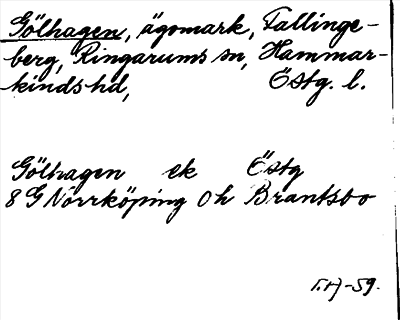 Gölhagen, ägomark, Fallinge-
berg, Ringarums sn, Hammar-
kinds hd, Östg. l.
Gölhagen ek Östg
8 G Norrköping 0h Brantsbo
-59.